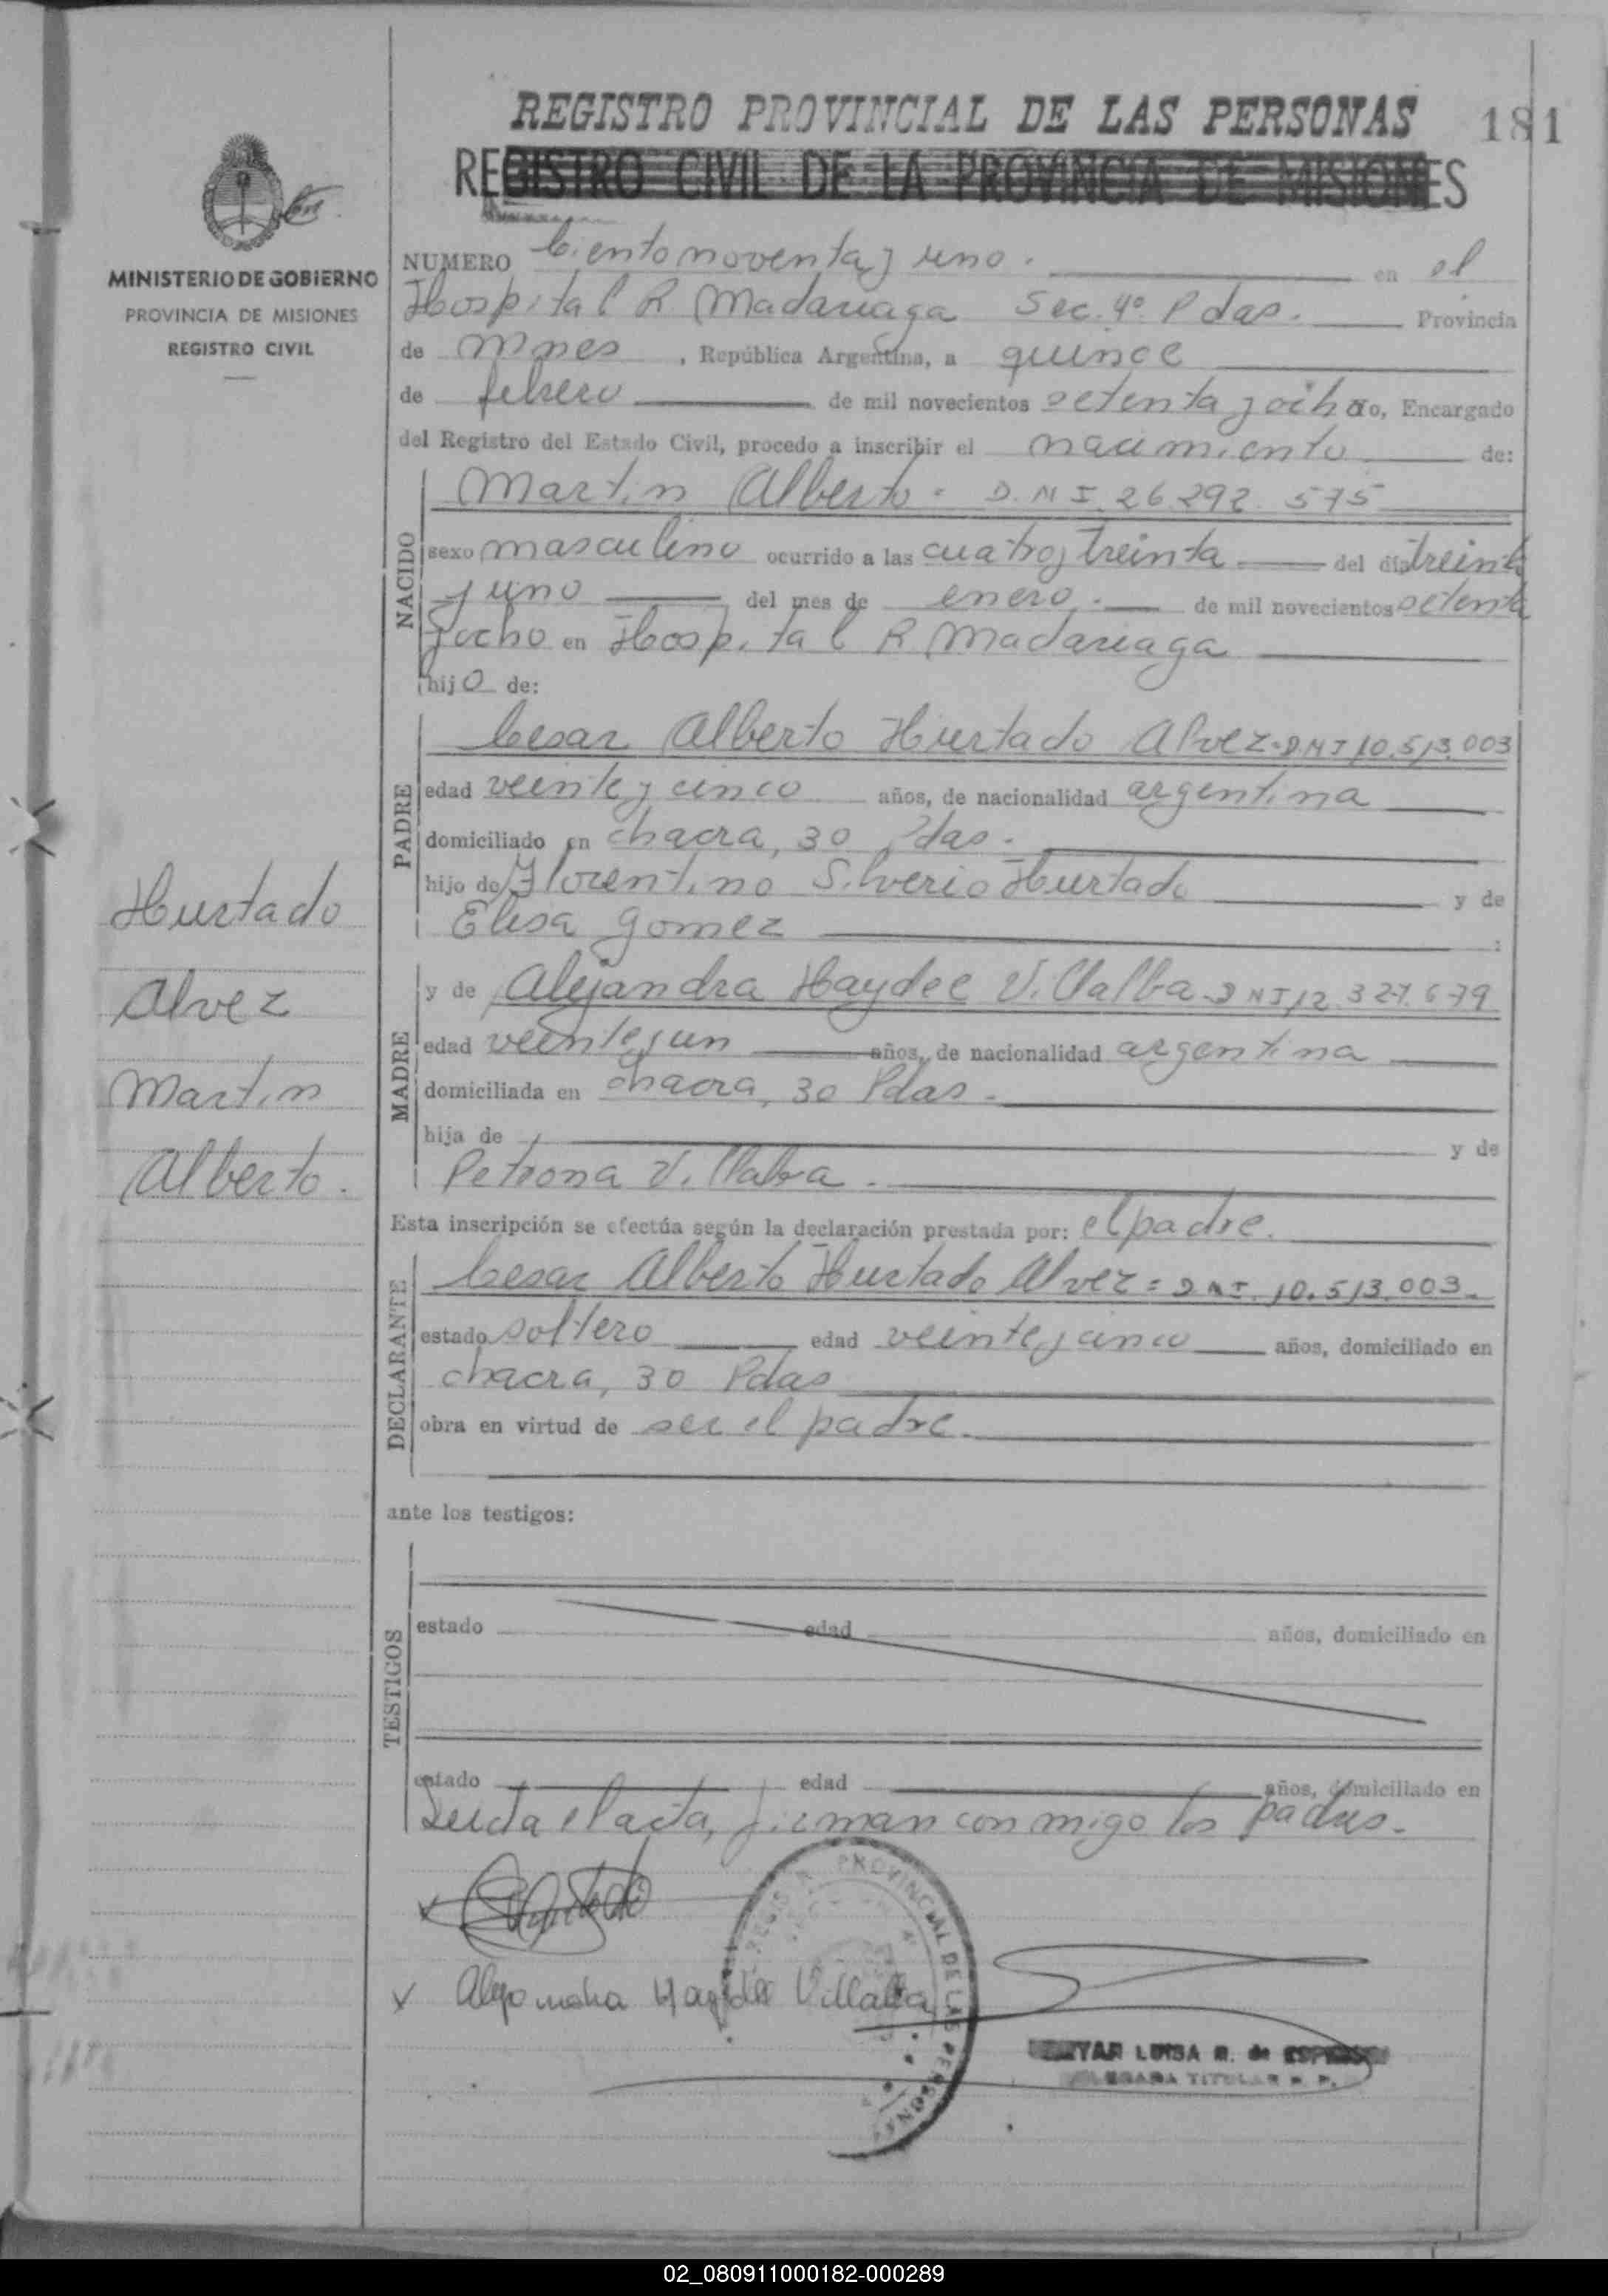 REGISTRO PROVINCIAL DE LAS PERSONAS 181
REGISTRO CIVIL DE LA PROVINCIA DE MISIONES
MINISTERIO DE GOBIERNO
PROVINCIA DE MISIONES
REGISTRO CIVIL
NUMERO Ciento noventa y uno. en el
Hospital R. Madariaga Sec. 4º Pdas. Provincia
de Mnes, República Argentina, a quince
de febrero de mil novecientos setenta y ocho, Encargado
del Registro del Estado Civil, procedo a inscribir el nacimiento de:
NACIDO
Martin Alberto - D.N.I. 26.292.575
sexo masculino ocurrido a las cuatro y treinta del día treinta
y uno del mes de enero.- de mil novecientos setenta
y ocho en Hospital R. Madariaga
hijo de:
PADRE
Cesar Alberto Hurtado Alvez - D.N.I 10.513.003
edad veinte y cinco años, de nacionalidad argentina
domiciliado en chacra, 30 Pdas.
hijo de Florentino Silverio Hurtado y de
Elisa Gomez :
MADRE
y de Alejandra Haydee Villalba - D N I 12.327.679
edad veinte y un años, de nacionalidad argentina
domiciliada en chacra, 30 Pdas.
hija de y de
Petrona Villalba.
Hurtado
Alvez
Martin
Alberto.
Esta inscripción se efectúa según la declaración prestada por: el padre.
DECLARANTE
Cesar Alberto Hurtado Alvez = D.N.I. 10.513.003.
estado soltero edad veinte y cinco años, domiciliado en
chacra, 30 Pdas
obra en virtud de ser el padre.
ante los testigos:
TESTIGOS
estado edad años, domiciliado en
estado edad años, domiciliado en
Leida el acta, firman conmigo los padres.
Alejandra Haydee Villalba
PROVINCIAL DE LAS PERSONAS
LUISA R. de
TITULAR
02_080911000182-000289